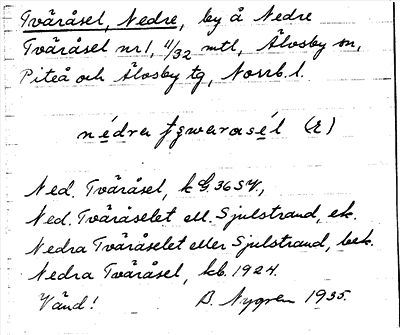 Tväråsel, Nedre, by å Nedre
Tväråsel nr 1, 11/32 mtl, Älvsby sn,
Piteå och Älvsby tg, Norrb. l.
nédra twarasél (E)
Ned. Tväråsel, k G. 36 SV,
Ned. Tväråselet ell. Sjulstrand, ek.
Nedra Tväråselet eller Sjulstrand, bek.
Nedra Tväråsel, kb. 1924.
Vänd! B. Nygren 1935.